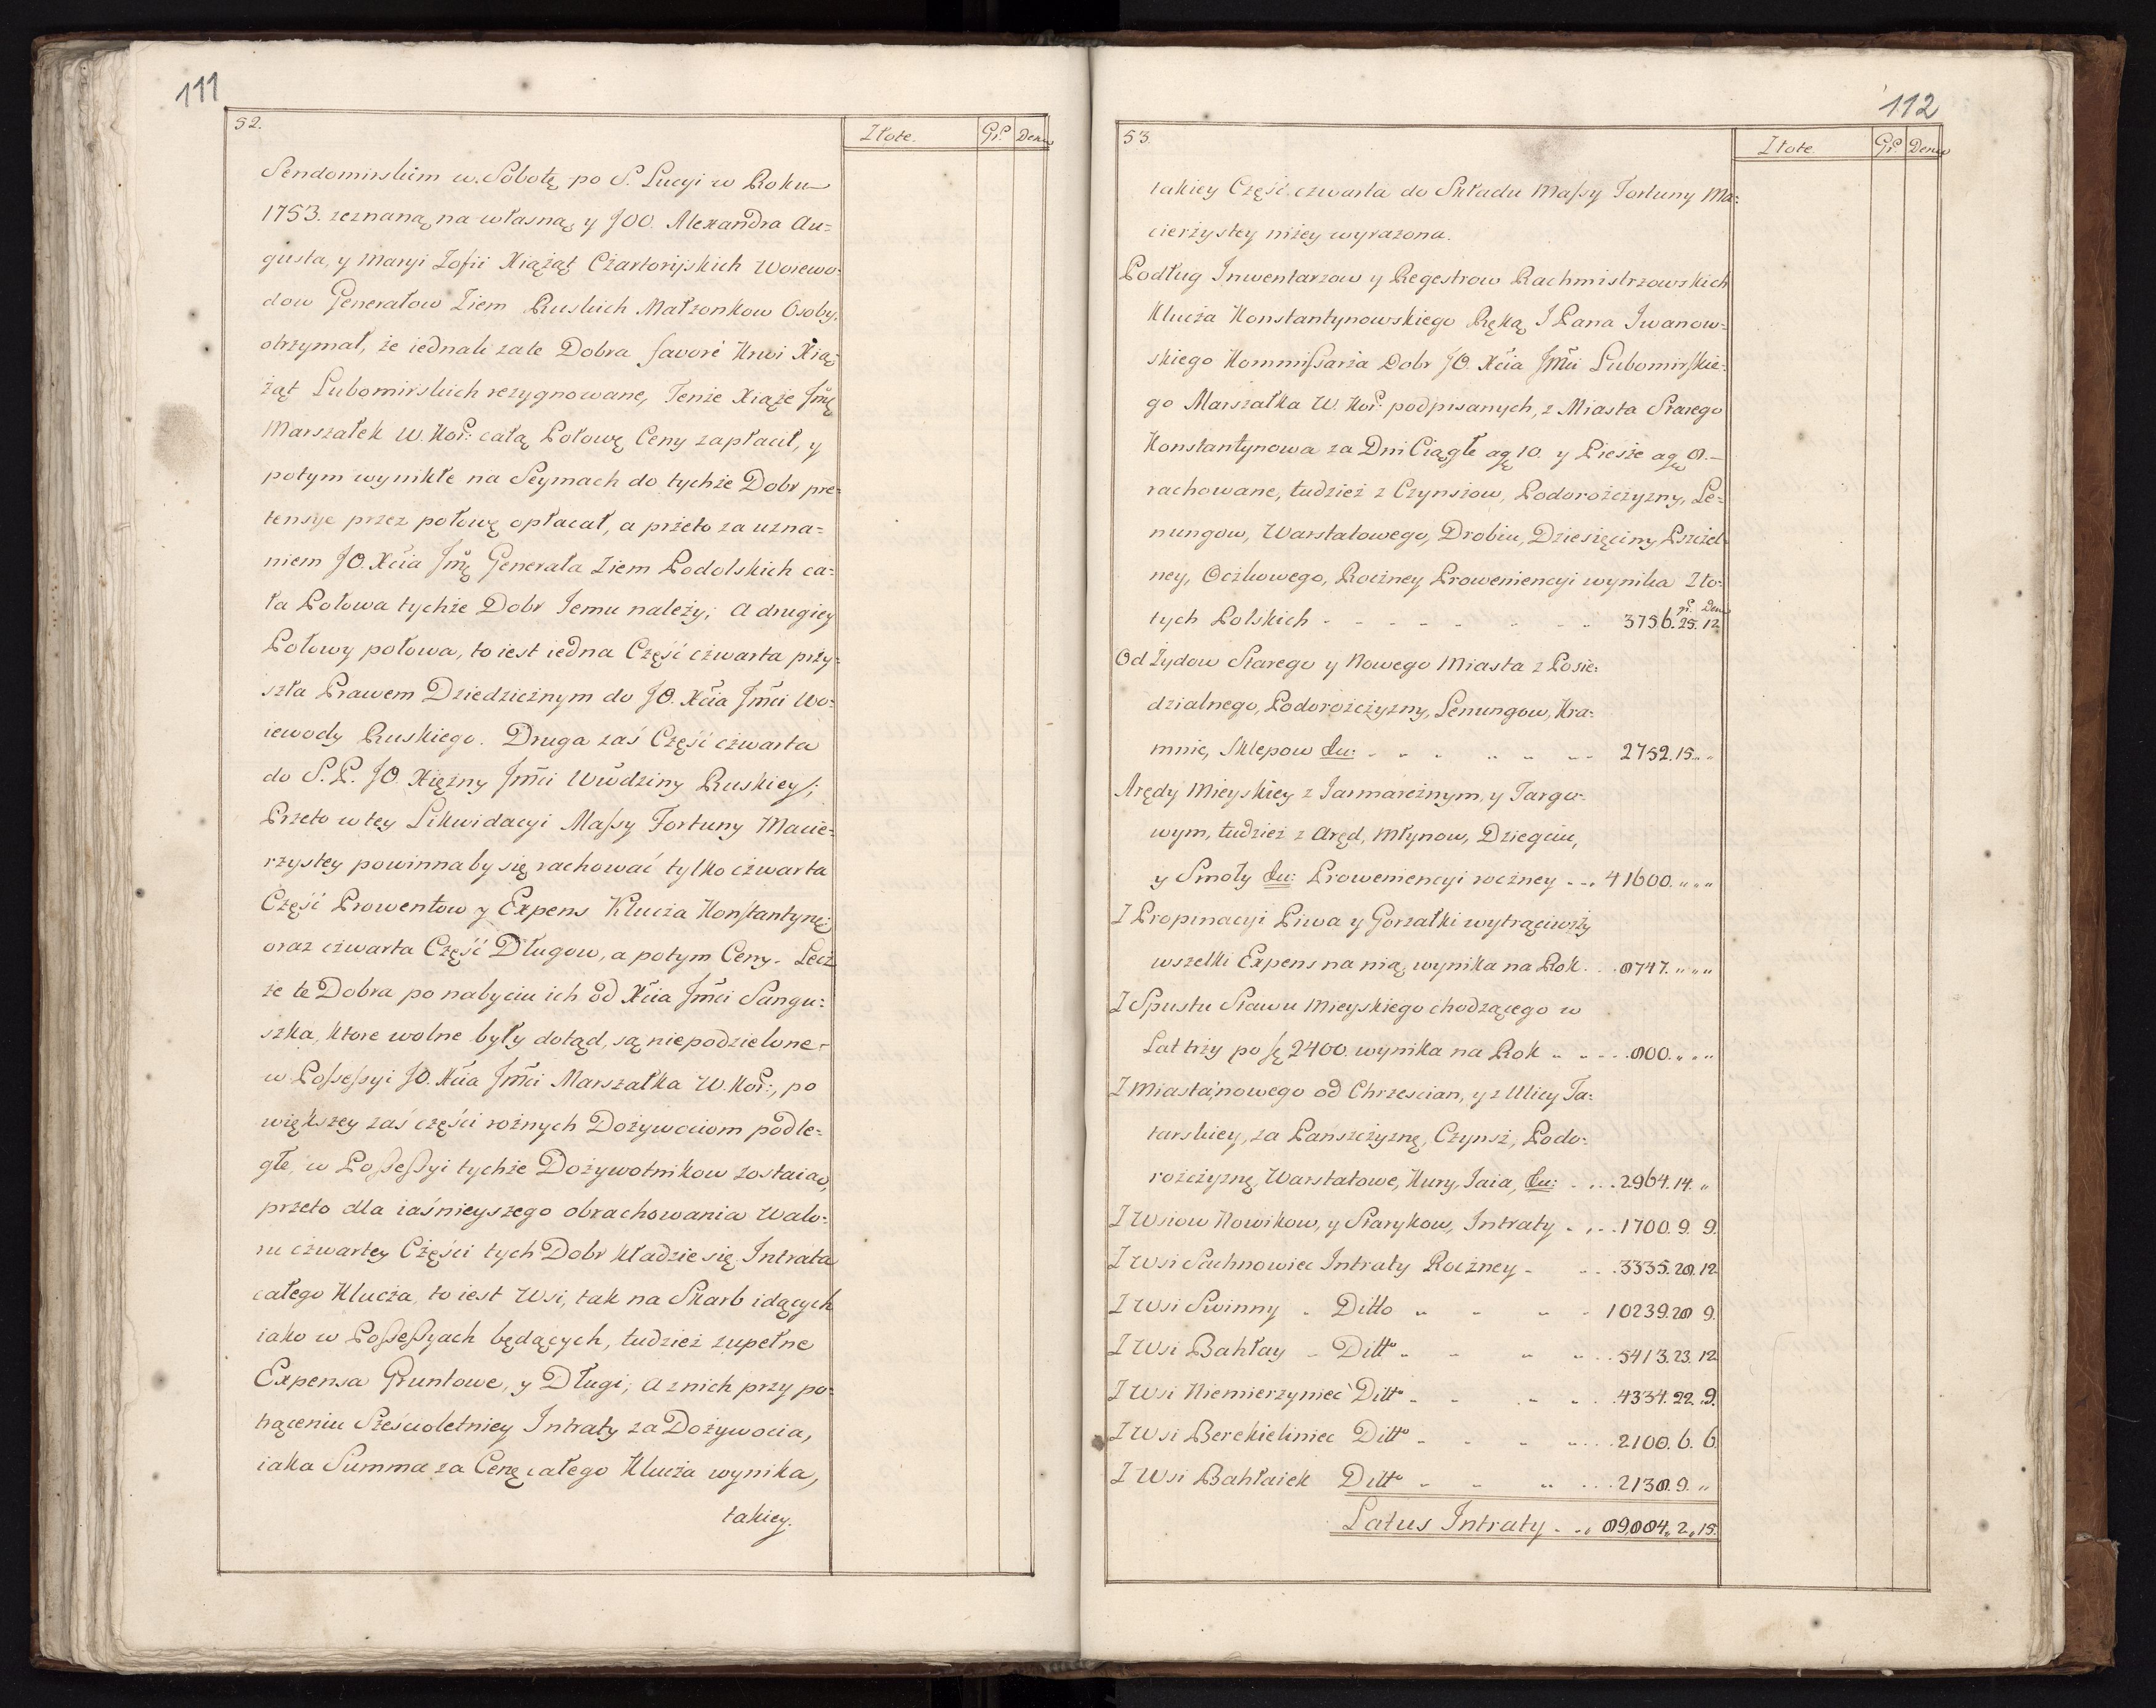 111
52.
Złote.
Gr.
Den.
Sendomirskim w Sobotę po S. Lucyi w Roku
1753. zeznaną na własną y JOO. Alexandra Au=
gusta, y Maryi Zofii Xiążąt Czartoryskich Woiewo=
dow Generałow Ziem Ruskich Małżonkow Osoby.
otrzymał, że iednak zate Dobra favore Krwi Xią=
żąt Lubomirskich rezygnowane, Tenże Xiąże Jmę
Marszałek W. Kor: całą Połowę Ceny zapłacił, y
potym wynikłe na Seymach do tychże Dobr pre=
tensye przez połowę opłacał, a przeto za uzna=
niem JO. Xcia Jmę Generała Ziem Podolskich ca=
ła Połowa tychże Dobr Jemu należy; A drugiey
Połowy połowa, to iest iedna Część czwarta przy=
szła Prawem Dziedzicznym do JO. Xcia Jmci Wo=
iewody Ruskiego. Druga zaś Część czwarta
do S. P. JO. Xiężny Jmci Wwdziny Ruskiey;
Przeto w tey Likwidacyi Massy Fortuny Macie=
rzystey powinnaby się rachować tylko czwarta
Część Prowentow y Expens Klucza Konstantyng:
oraz czwarta Część Długow, a potym Ceny. Lecz
że te Dobra po nabyciu ich od Xcia Jmci Sangu=
szka, ktore wolne były dotąd, są niepodzielone
w Possessyi JO. Xcia Jmci Marszałka W. Kor:, po
większey zaś części rożnych Dożywociom podle=
głe, w Possessyi tychże Dożywotnikow zostaiąc,
przeto dla iaśnieyszego obrachowania Walo=
ru czwartey Części tych Dobr kładzie się Intrata
całego Klucza, to iest Wsi, tak na Skarb idących
iako w Possessyach będących, tudzież zupełne
Expensa Gruntowe, y Długi; A z nich przy po=
trąceniu Sześcioletniey Intraty za Dożywocia,
iaka Summa za Cenę całego Klucza wynika,
takiey.
112
53.
Złote.
Gr.
Den.
takiey Część czwarta do Składu Massy Fortuny Ma=
cierzystey niżey wyrażona.
Podług Inwentarzow y Regestrow Rachmistrzowskich
Klucza Konstantynowskiego Ręką JPana Iwanow=
skiego Kommissarza Dobr JO. Xcia Jmci Lubomirskie=
go Marszałka W. Kor: podpisanych, z Miasta Starego
Konstantynowa za Dni Ciągłe ag 10. y Piesze ag 8.
rachowane, tudzież z Czynszow, Podorożczyzny, Le=
nungow, Warstatowego, Drobiu, Dziesięciny Pszczel=
ney, Oczkowego, Roczney Proweniencyi wynika Zło=
tych Polskich - - - - - - 3756. gr. 25. Den. 12.
Od Żydow Starego y Nowego Miasta z Posie=
dzialnego, Podorożczyzny, Lenungow, Kra=
mnic, Sklepow &c: - - - - 2752. 15. „
Arędy Mieyskiey z Jarmarcznym, y Targo=
wym, tudzież z Aręd, Młynow, Dziegciu,
y Smoły &c: Proweniencyi roczney - - 41600. „ „
Z Propinacyi Piwa y Gorzałki wytrąciwszy
wszelki Expens na nią, wynika na Rok - - 8747. „ „
Z Spustu Stawu Mieyskiego chodzącego w
Lat trzy po fl 2400. wynika na Rok - - - 800. „ „
Z Miasta nowego od Chrzescian, y z Ulicy Ta=
tarskiey, za Panszczyznę, Czynsz, Podo=
rożczyznę, Warstatowe, Kury, Jaia, &c: - - 2964. 14. „
Z Wsiow Nowikow, y Starykow, Intraty - - 1700. 9. 9.
Z Wsi Sachnowiec Intraty Roczney - - 3335. 28. 12.
Z Wsi Swinny - Ditto - - - 10239. 28. 9.
Z Wsi Bahłay - Ditto - - - 5413. 23. 12.
Z Wsi Niemierzyniec Ditto - - - 4334. 22. 9.
Z Wsi Berekieliniec Ditto - - - 2100. 6. 6.
Z Wsi Bahłaiek Ditto - - - 2138. 9. „
Latus Intraty - - 89,884„ 2„ 15.